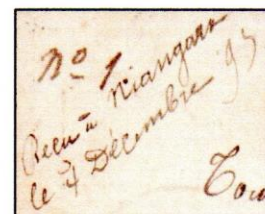 No 1
Reçu à Niangara
le 4 Décembre 95